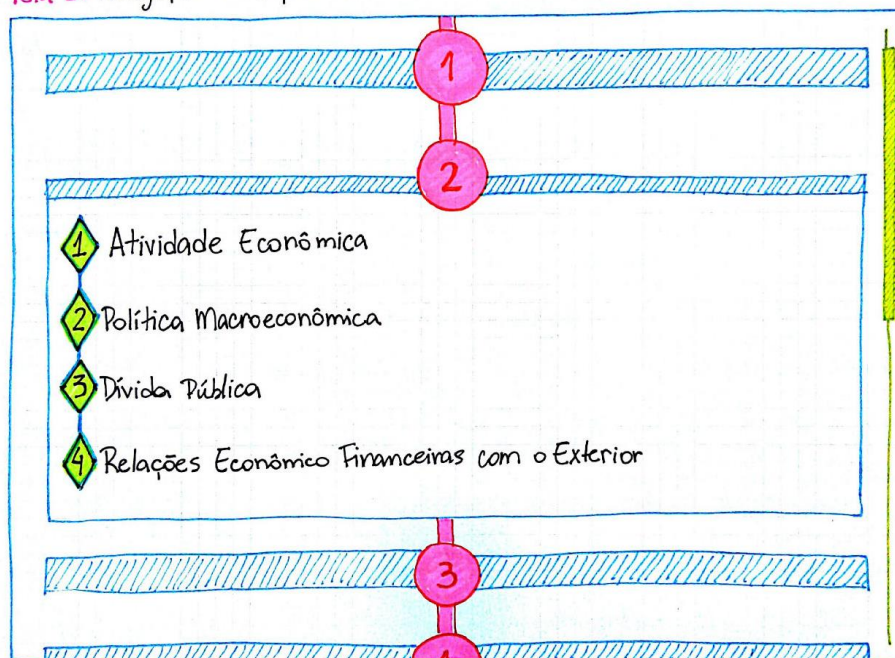 1
2
1 Atividade Econômica
2 Política Macroeconômica
3 Dívida Pública
4 Relações Econômico Financeiras com o Exterior
3